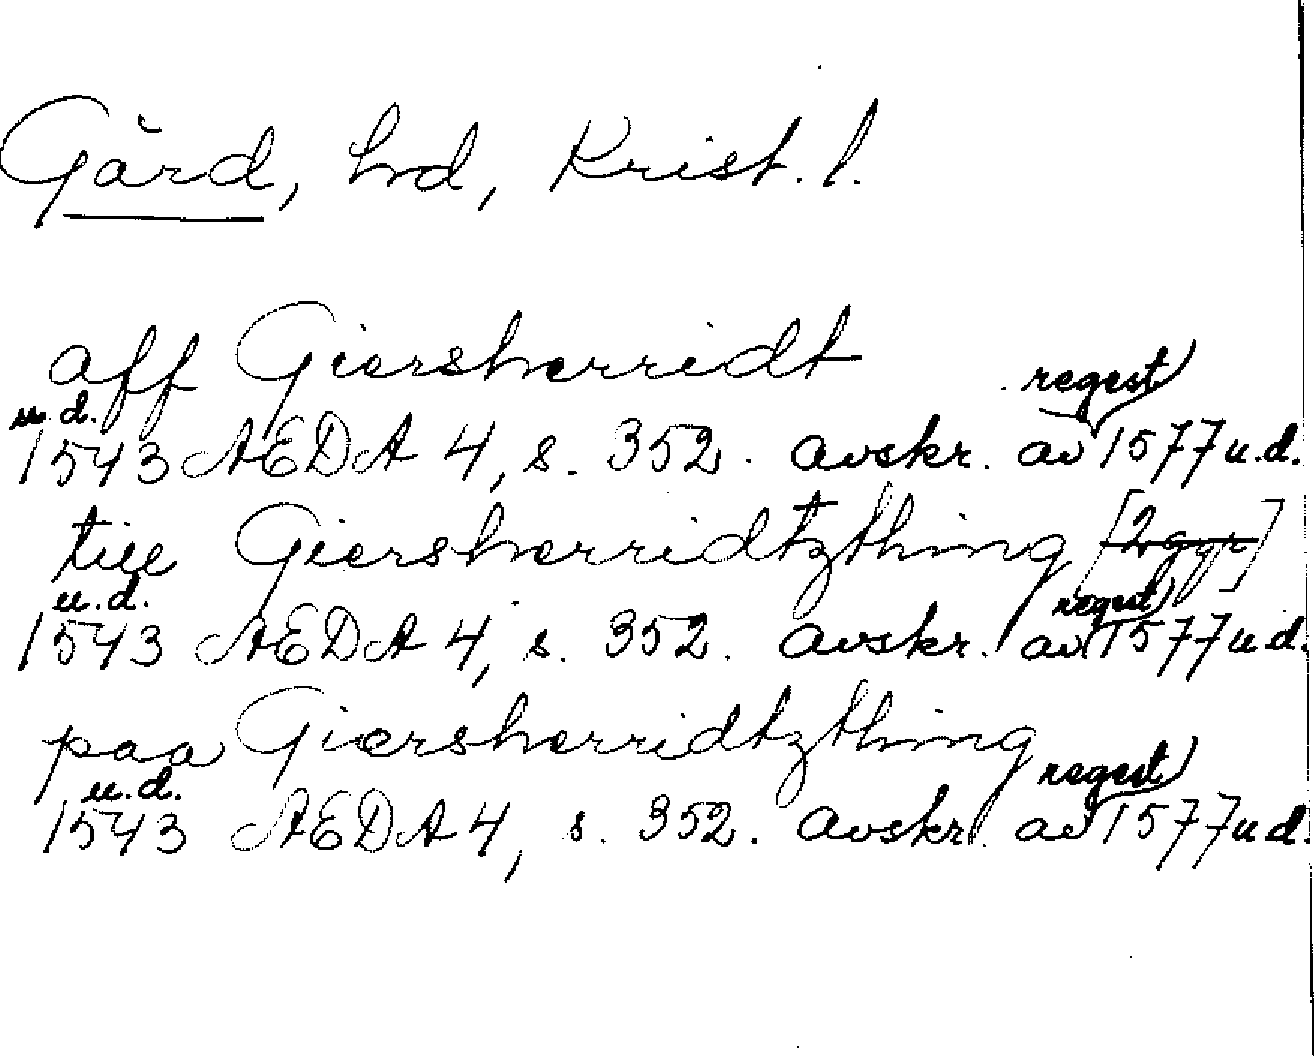 Gärd, hd, Krist. l.
aff Giersherridt
u.d. regest
1543 AEDA 4, s. 352. avskr. av 1577 u.d.
till Giersherridtzthing [2 ggr]
u.d. regest
1543 AEDA 4, s. 352. avskr. av 1577 u.d.
paa Giersherridtzthing
u.d. regest
1543 AEDA 4, s. 352. avskr. av 1577 u.d.